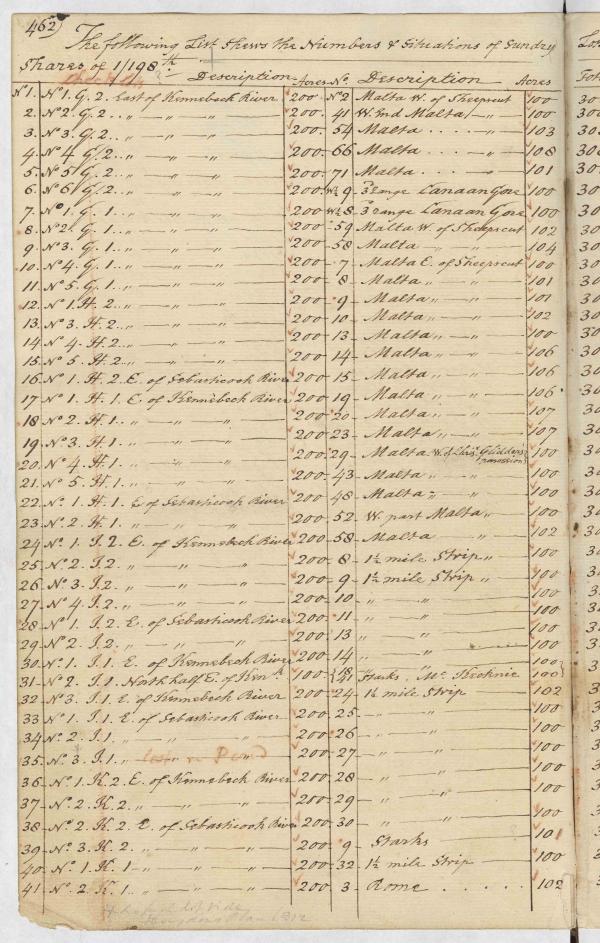 462
The following List Shews the Numbers & Situations of Sundry
Shares of 1/198th
Description Acres No. Description Acres
No 1. No 1. G. 2. East of Kennebeck River 200 No 2 Malta W. of Sheepscut 100
2. No 2. G. 2. " " 200 41 W. End Malta " 100
3. No 3. G. 2. " " 200 54 Malta " 103
4. No 4 G. 2. " " 200 66 Malta " 108
5. No 5 G. 2. " " 200 71 Malta " 101
6. No 6 G. 2. " " 200 W½ 9 3d range Canaan Gore 100
7. No 1. G. 1. " " 200 W½ 8 3 range Canaan Gore 100
8. No 2. G. 1. " " 200 59 Malta W. of Sheepscut 102
9. No 3. G. 1. " " 200 58 Malta " " 104
10. No 4. G. 1. " " 200 7 Malta E. of Sheepscut 100
11. No 5. G. 1. " " 200 8 Malta " " 101
12. No 1. H. 2. " " 200 9 Malta " " 101
13. No 3. H. 2. " " 200 10 Malta " " 102
14. No 4. H. 2. " " 200 13 Malta " " 100
15. No 5. H. 2. " " 200 14 Malta " " 106
16. No 1. H. 2. E. of Sebasticook River 200 15 Malta " " 106
17. No 1. H. 1. E. of Kennebeck River 200 19 Malta " " 106
18. No 2. H. 1. " " 200 20 Malta " " 107
19. No 3. H. 1. " " 200 23 Malta " " 107
20. No 4. H. 1. " " 200 29 Malta W. of Glidden's 100
21. No 5. H. 1. " " 200 43 Malta " " 100
22. No 1. H. 1. E of Sebasticook River 200 48 Malta " " 100
23. No 2. H. 1. " " " 200 52 W. part Malta " 100
24. No 1. I. 2. E. of Kennebeck River 200 58 Malta " 102
25. No 2. I. 2. " " " 200 8 1½ mile Strip " 100
26. No 3. I. 2. " " " 200 9 1½ mile Strip " 100
27. No 4. I. 2. " " " 200 10 " " 100
28. No 1. I. 2. E. of Sebasticook River 200 11 " " 100
29. No 2. I. 2. " " " 200 13 " " 100
30. No 1. I. 1. E. of Kennebeck River 200 14 " " 100
31. No 2. I. 1. North half E. of Ken. 100 Starks, Mc. Kecknie 190
32. No 3. I. 1. E. of Kennebeck River 200 24 1½ mile Strip 102
33. No 1. I. 1. E. of Sebasticook River 200 25 " " 100
34. No 2. I. 1. " " " 200 26 " " 100
35. No 3. I. 1. " " 200 27 " " 100
36. No 1. K. 2. E. of Kennebeck River 200 28 " " 100
37. No 2. K. 2. " " " 200 29 " " 100
38. No 2. K. 2. E. of Sebasticook River 200 30 " " 100
39. No 3. K. 2. " " " 200 9 Starks 101
40. No 1. K. 1 " " " 200 32 1½ mile Strip 100
41. No 2. K. 1. " " " 200 3 Rome 102